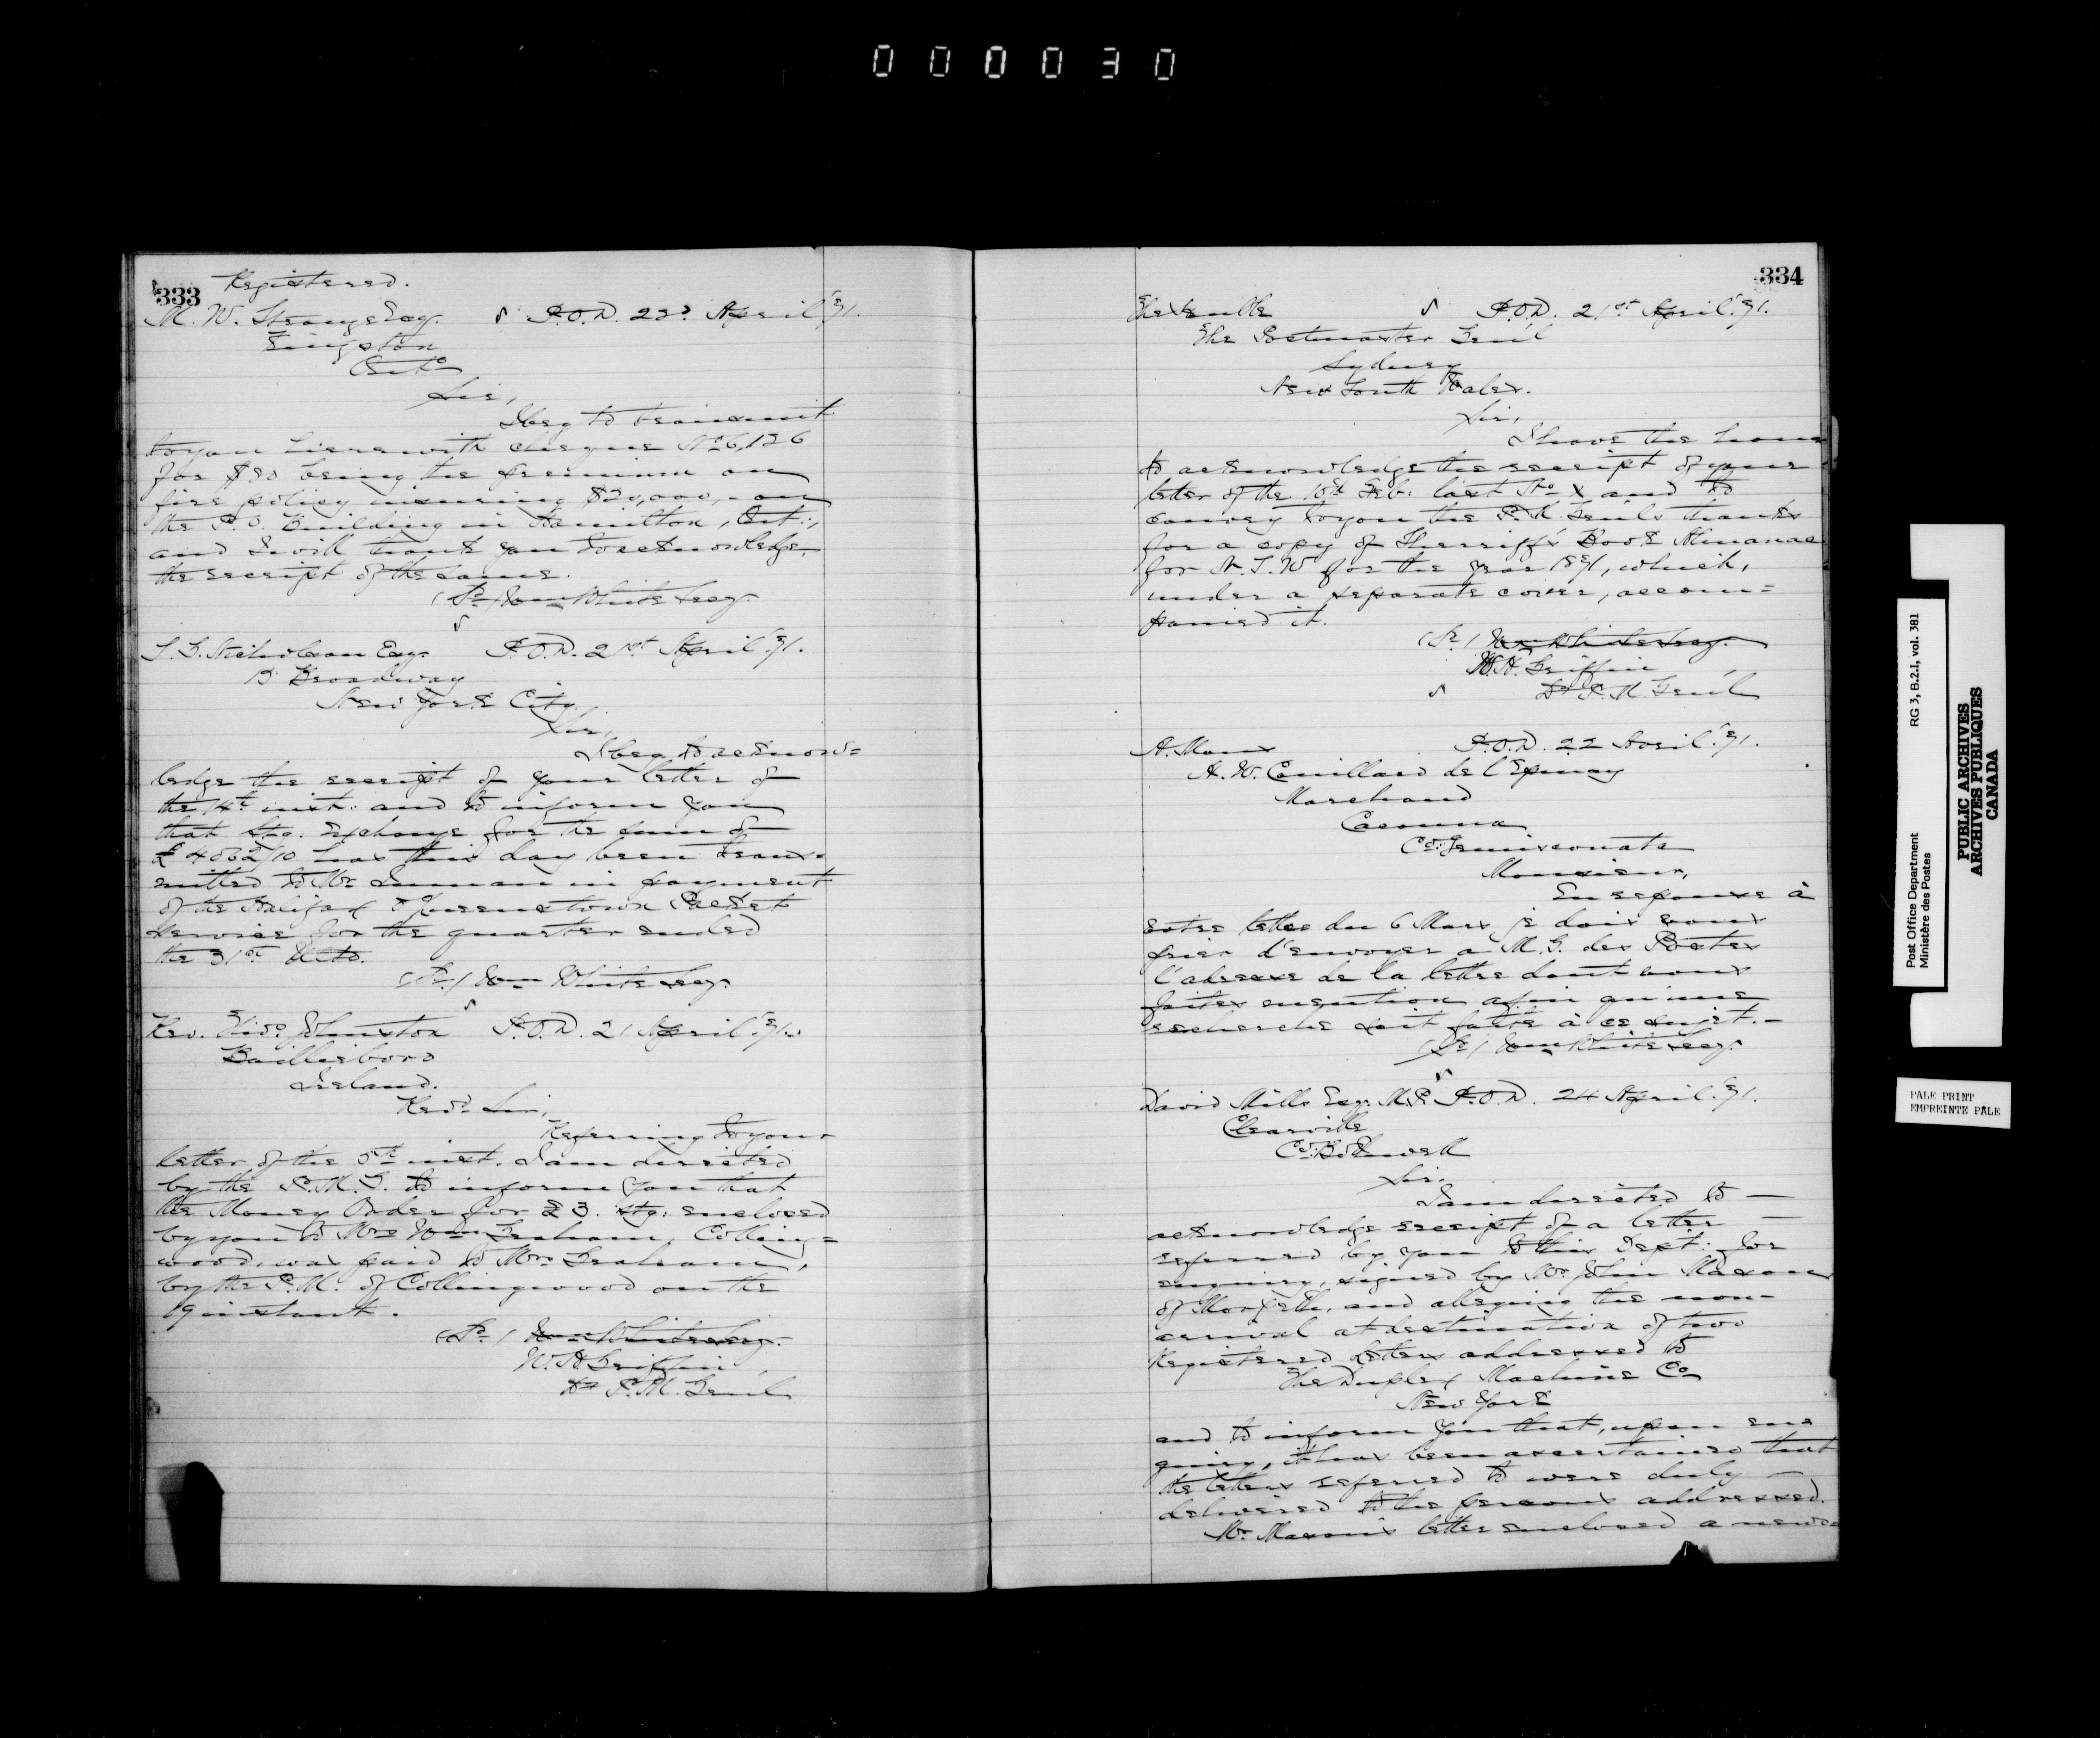 000030
333
Registered.
M. W. Strange Esq. P.O.D. 22d April '71.
Kingston
Onto
Sir,
I beg to transmit
to you herewith cheque No 6,136
for $80 being the premium on
fire policy insuring $20,000,- on
the P.O. Building in Hamilton, Ont:,
and I will thank you to acknowledge
the receipt of the same.
(Sd.) Wm White Secy.
Nicholson Esq. P.O.D. 21st April '71.
Broadway
New York City.
Sir,
I beg to acknow=
ledge the receipt of your letter of
the 14th inst: and to inform you
that Stg: Exchange for the sum of
has this day been trans=
mitted to Mr Inman in payment
of the Halifax & Queenstown Packet
service for the quarter ended
the 31st Ulto.
(Sd.) Wm White Secy.
Rev. Johnston P.O.D. 21 April '71.
Bailliboro
Ireland.
Revd Sir,
Referring to your
letter of the 5th inst. I am directed
by the P.M.G. to inform you that
the Money Order for £3. stg: enclosed
by you to Mrs Wm Graham, Colling=
wood, was paid to Mrs Graham,
by the P.M. of Collingwood on the
19 instant.
(Sd.) Wm White Secy.
W. H. Griffin,
Dy P.M. Genl
334
The P.O.D. 21st April '71.
The Postmaster Genl
Sydney
New South Wales.
Sir,
I have the honor
to acknowledge the receipt of your
letter of the 10th Feb: last No X and to
convey to you the P.M. Genl's thanks
for a copy of Sherriff's Book Almanac
for N.S.W for the year 1871, which,
under a separate cover, accom=
panied it.
(Sd.) Wm White Secy.
W. H. Griffin,
Dy P.M. Genl
A. Mons P.O.D. 22 Avril '71.
A. W. Couillard de l'Epinay
Marchand
Cacouna
Co: Temiscouata
Monsieur,
En reponse à
votre lettre du 6 Mars je dois vous
prier d'envoyer a M. G. des Postes
l'adresse de la lettre dont vous
faites mention afin qu'une
recherche soit faite à ce sujet.-
(Sd.) Wm White Secy.
David Mills Esq. M.P. P.O.D. 24 April '71.
Clearville
Co: Bothwell
Sir,
I am directed to
acknowledge receipt of a letter
referred by you to this Dept: for
enquiry, signed by Mr John Maxon
of Morpeth, and alleging the non-
arrival at destination of two
Registered letters addressed to
The Duplex Machine Co
New York
and to inform you that, upon en=
quiry, it has been ascertained that
the letters referred to were duly
delivered to the persons addressed.
Mr. Maxon's letter enclosed a news=
Post Office Department RG 3, B.2.I, vol. 381
Ministère des Postes
PUBLIC ARCHIVES
ARCHIVES PUBLIQUES
CANADA
PALE PRINT
EMPREINTE PALE